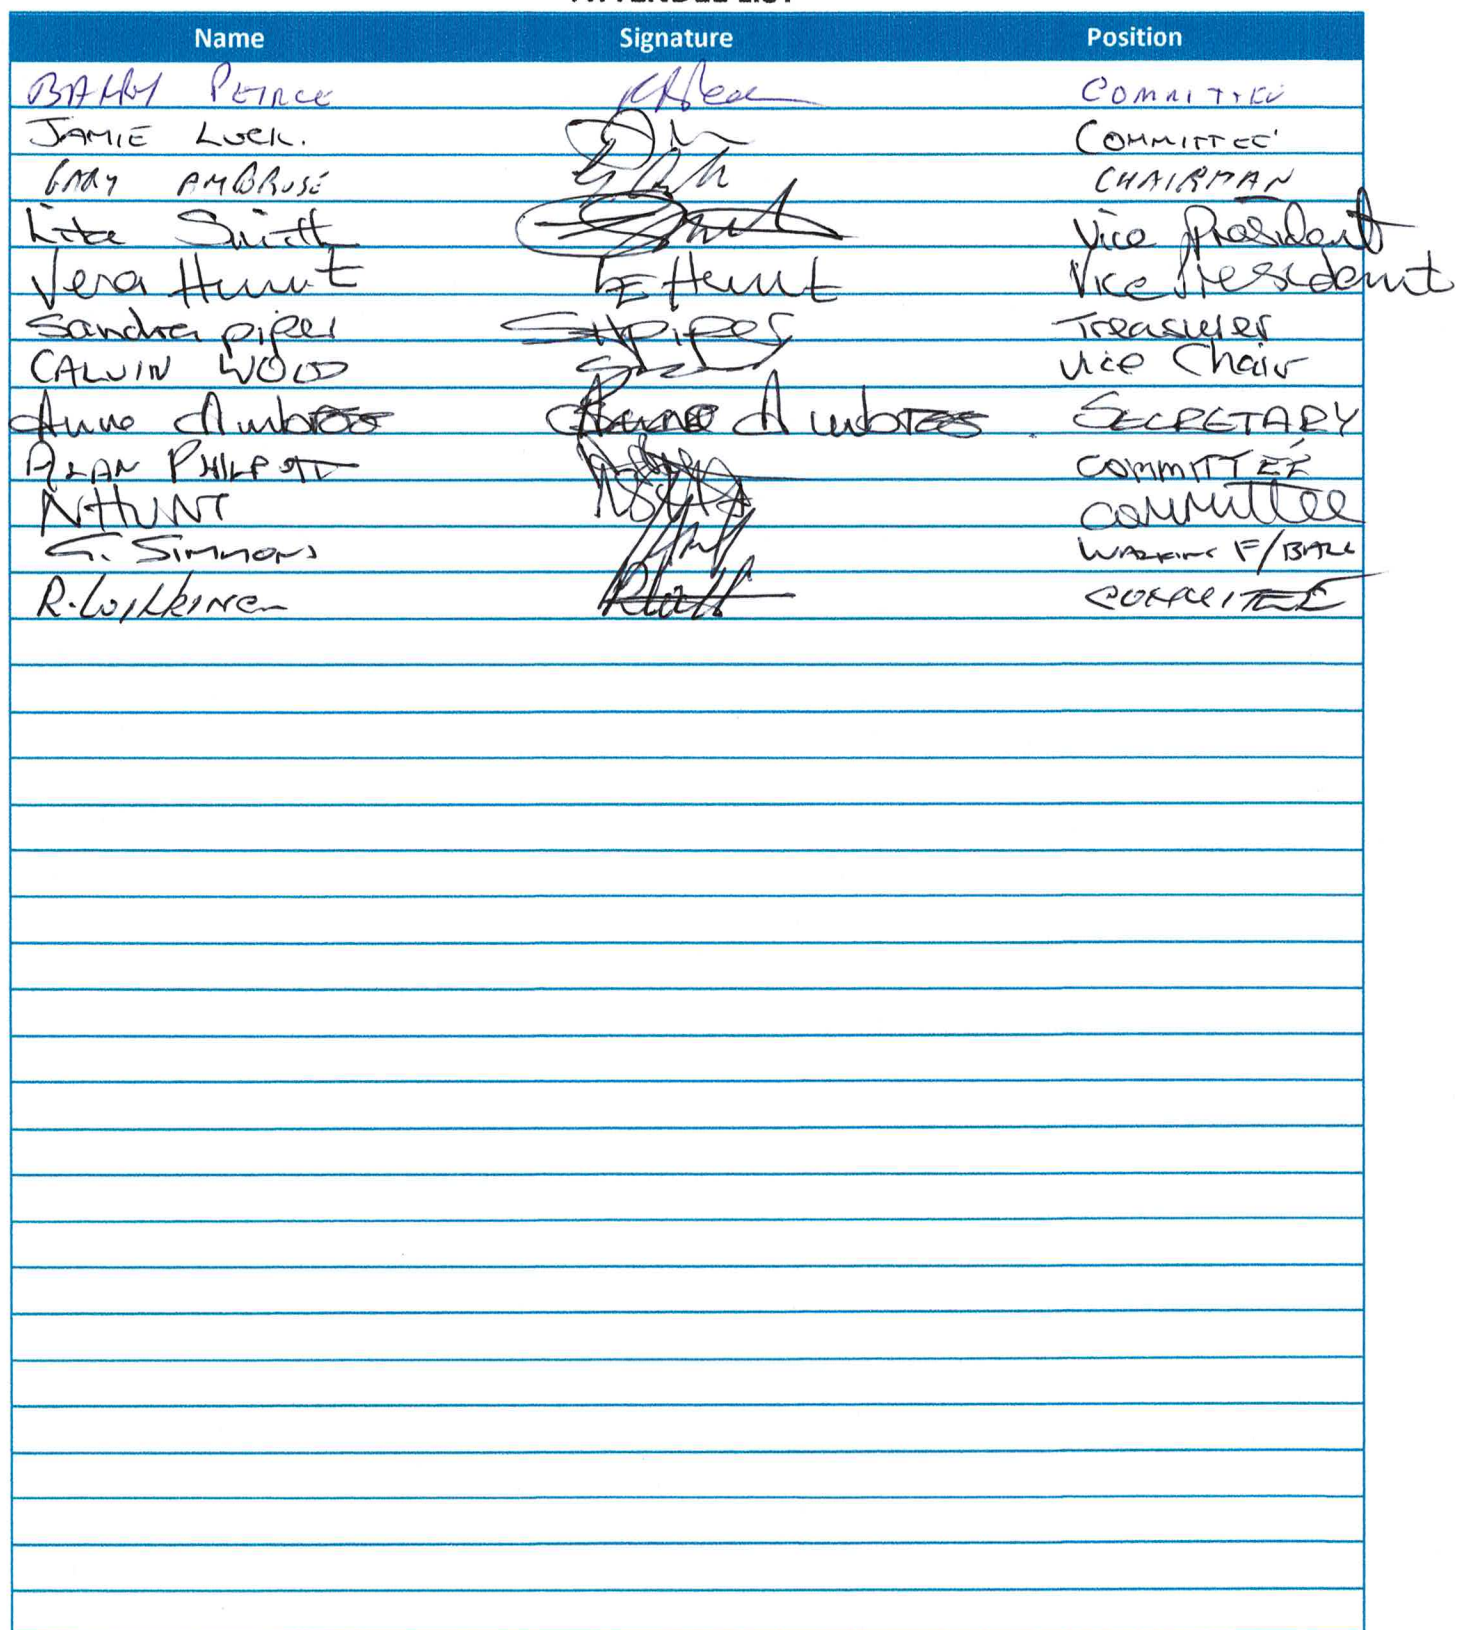 Name Signature Position
BARRY PEIRCE COMMITTEE
JAMIE LUCK. COMMITTEE
GARY AMBROSE CHAIRMAN
Smith Vice President
Vera Hunt Hunt Vice President
Sandra piper SHpiper Treasurer
CALVIN WOOD Vice Chair
Anne Ambrose Anne Ambrose SECRETARY
ALAN PHILPOTT COMMITTEE
N HUNT committee
G. SIMMONS WALKING F/BALL
COMMITTEE